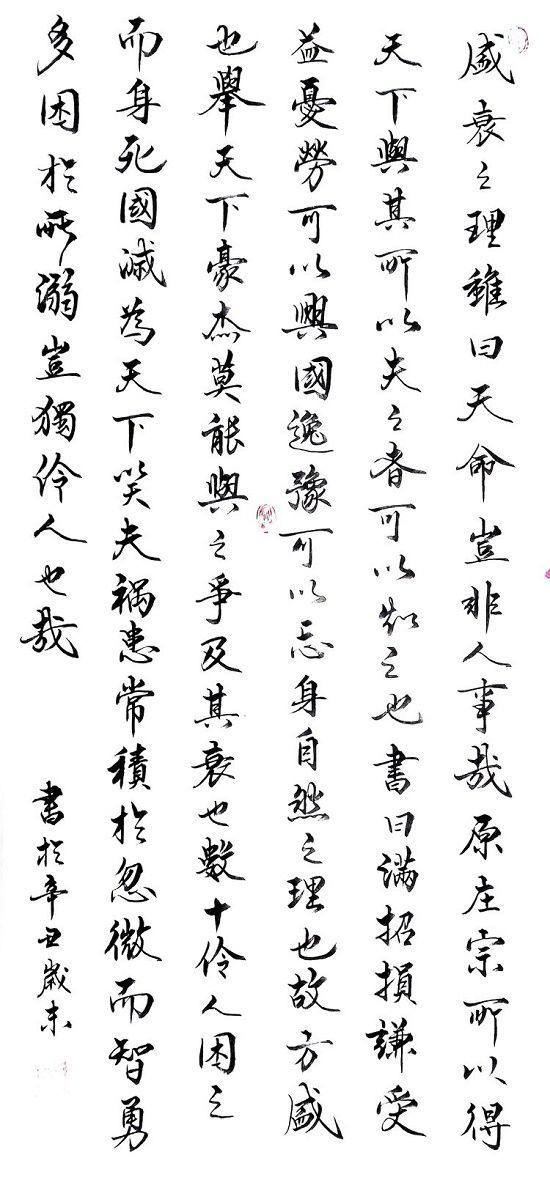 盛衰之理雖曰天命豈非人事哉原庄宗所以得
天下與其所以失之者可以知之也書曰滿招損謙受
益憂勞可以興國逸豫可以忘身自然之理也故方盛
也舉天下豪杰莫能與之爭及其衰也數十伶人困之
而身死國滅為天下笑夫禍患常積於忽微而智勇
多困於所溺豈獨伶人也哉
書於辛丑歲末